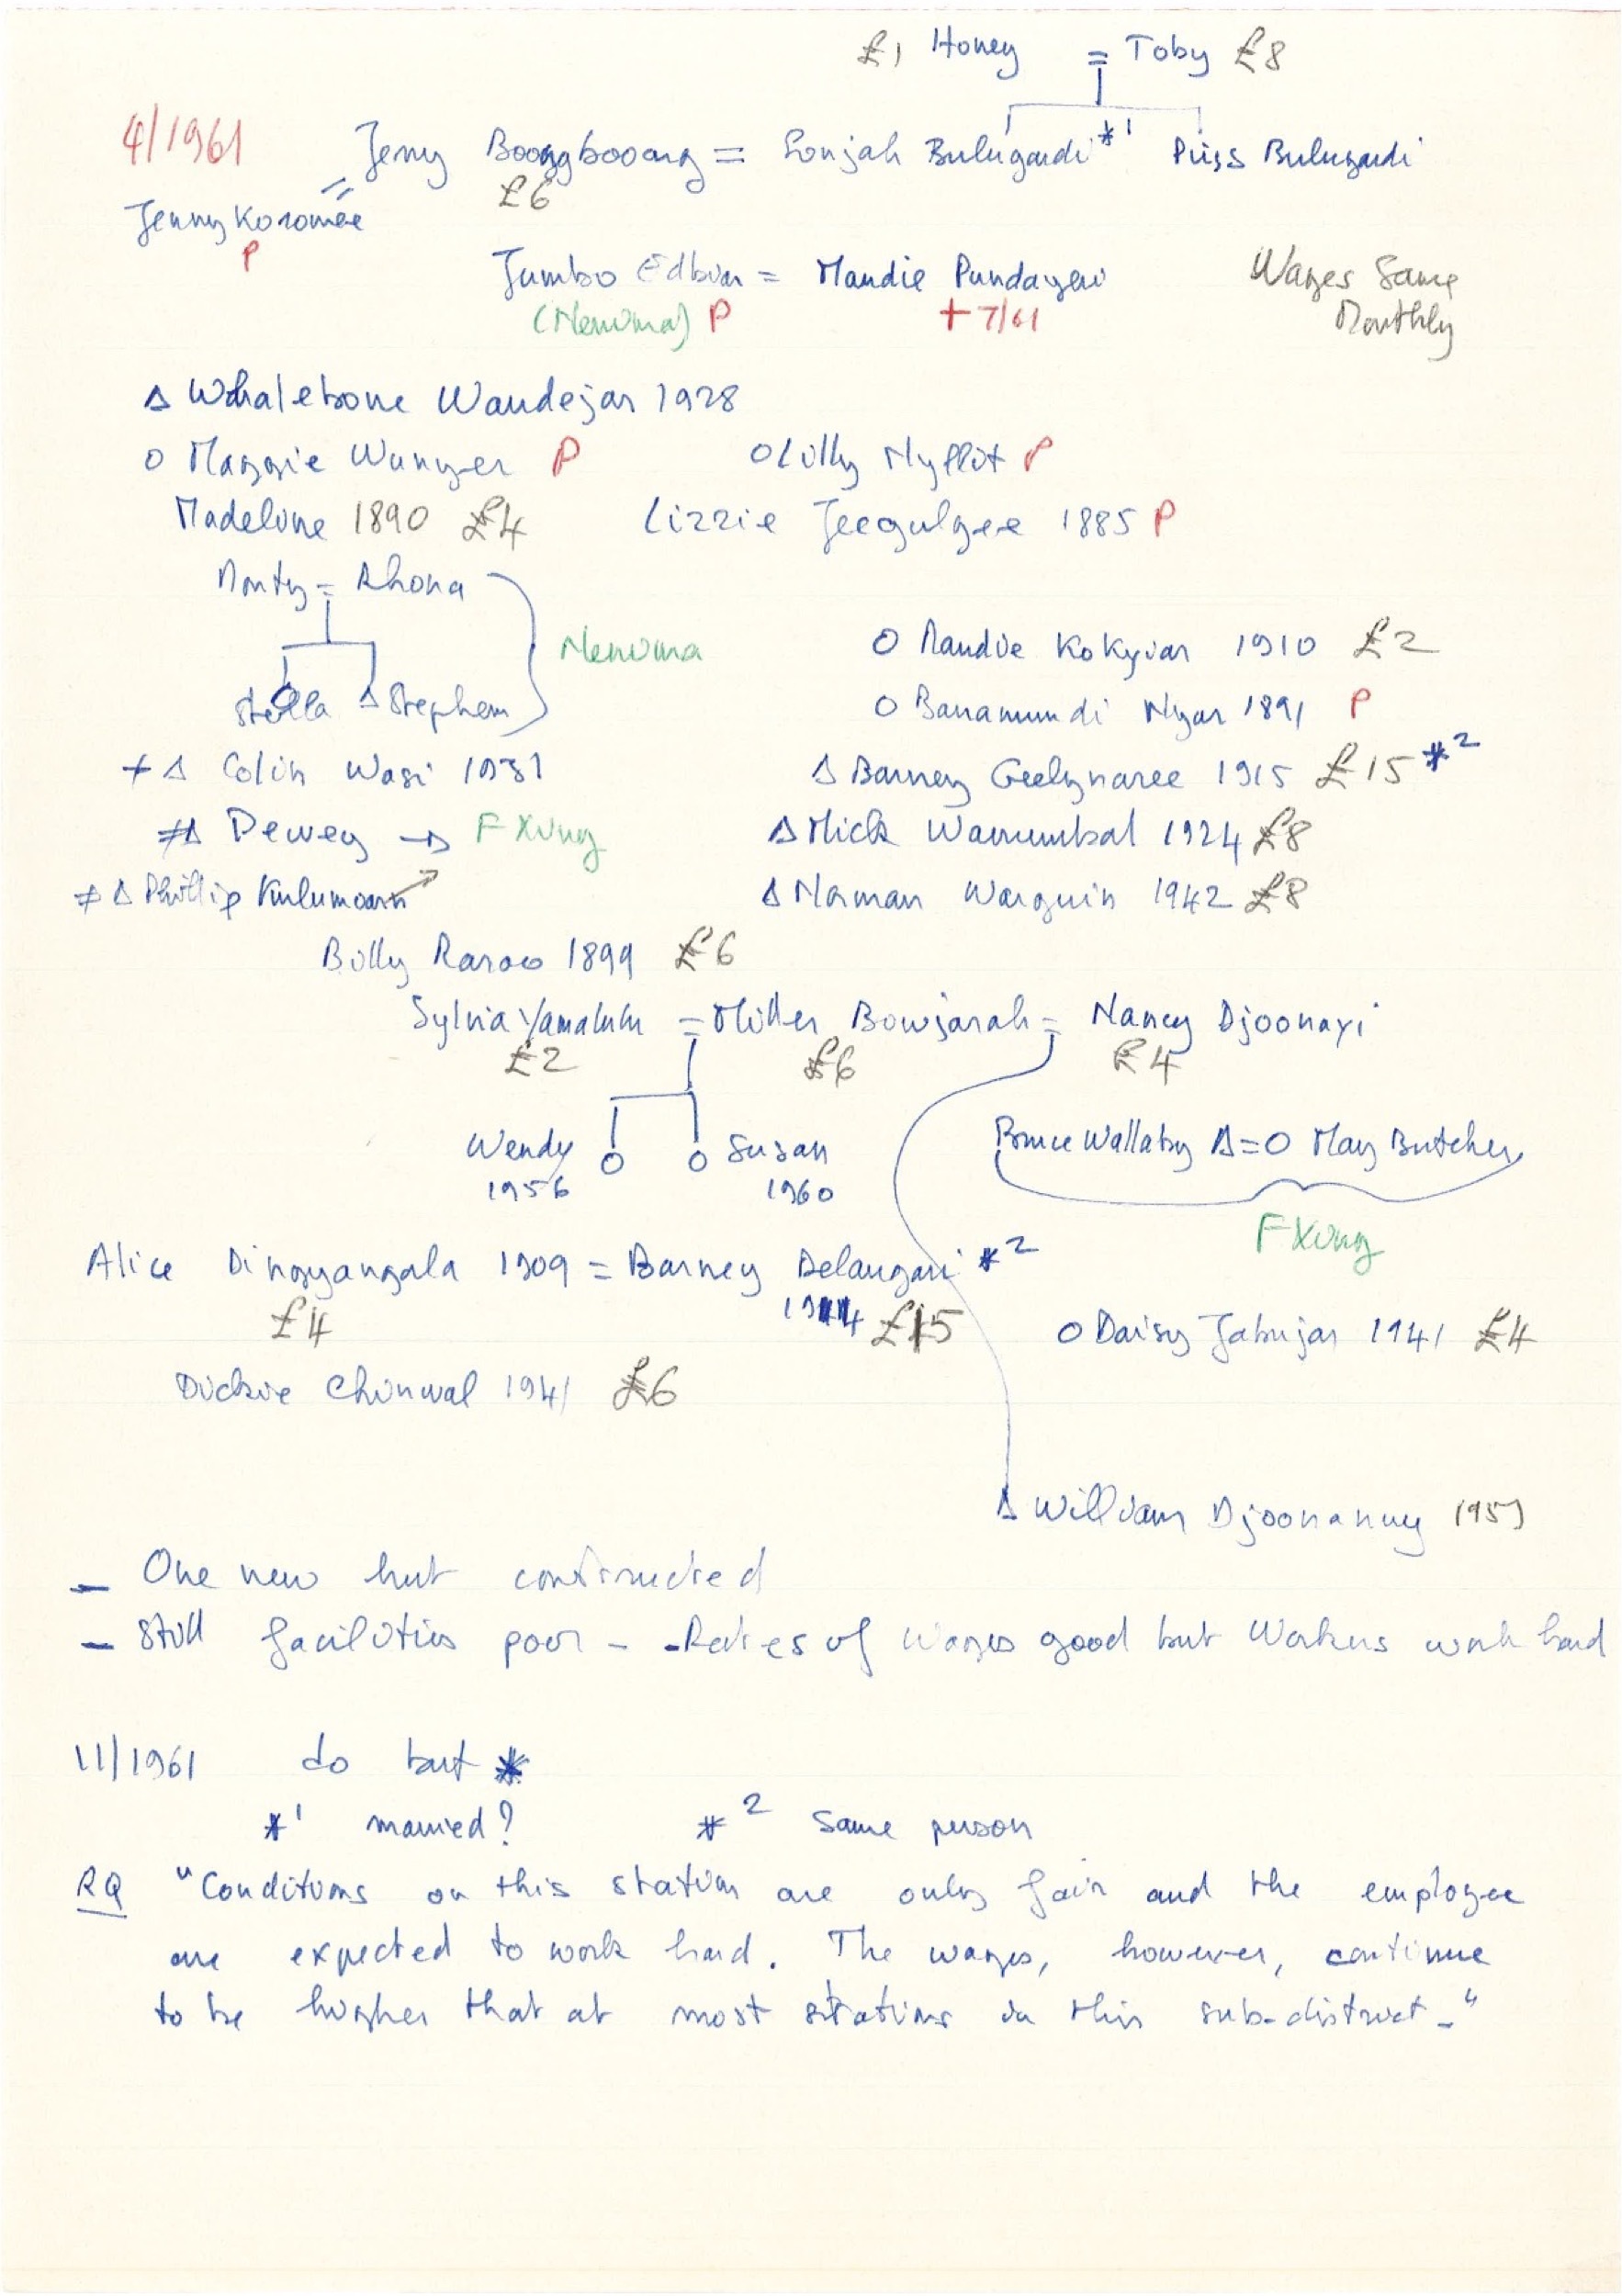 £1 Honey = Toby £8
4/1961 Jerry Booggbooang = Sonjah Bulugardi *1 Puss Bulugardi
£6
= Jenny Koromee
P
Jumbo Edbin = Maudie Pundayeri Wages Same
(Nenima) P + 7/61 Monthly
Δ Whalebone Wandejar 1928
O Maggie Wunger P O Lilly Nyflit P
Madeline 1890 £4 Lizzie Jeegulgee 1885 P
Monty = Rhona
Nenima O Maudie Kokyiar 1910 £2
Stella Δ Stephen O Banamundi Nyar 1891 P
+ Δ Colin Wasi 1931 Δ Barney Geelynaree 1915 £15 *2
≠Δ Dewey → FXing Δ Mick Wamumbal 1924 £8
≠ Δ Phillip Kulumoarn Δ Norman Warguin 1942 £8
Billy Raroo 1899 £6
Sylvia Yamalulu = Miller Bowjarah = Nancy Djoonayi
£2 £6 £4
Wendy O O Susan Bruce Wallaby Δ=O May Butcher
1956 1960
FXing
Alice Dingyangala 1909 = Barney Delangari *2
£4 1914 £15 O Daisy Jabujar 1941 £4
Dickie Chinwal 1941 £6
Δ William Djoonanuy 195
– One new hut constructed
– Still facilities poor – - Rates of Wages good but Workers work hard
11/1961 do but *
*1 married? *2 Same person
RQ "Conditions on this station are only fair and the employee
are expected to work hard. The wages, however, continue
to be higher that at most stations in this sub-district."